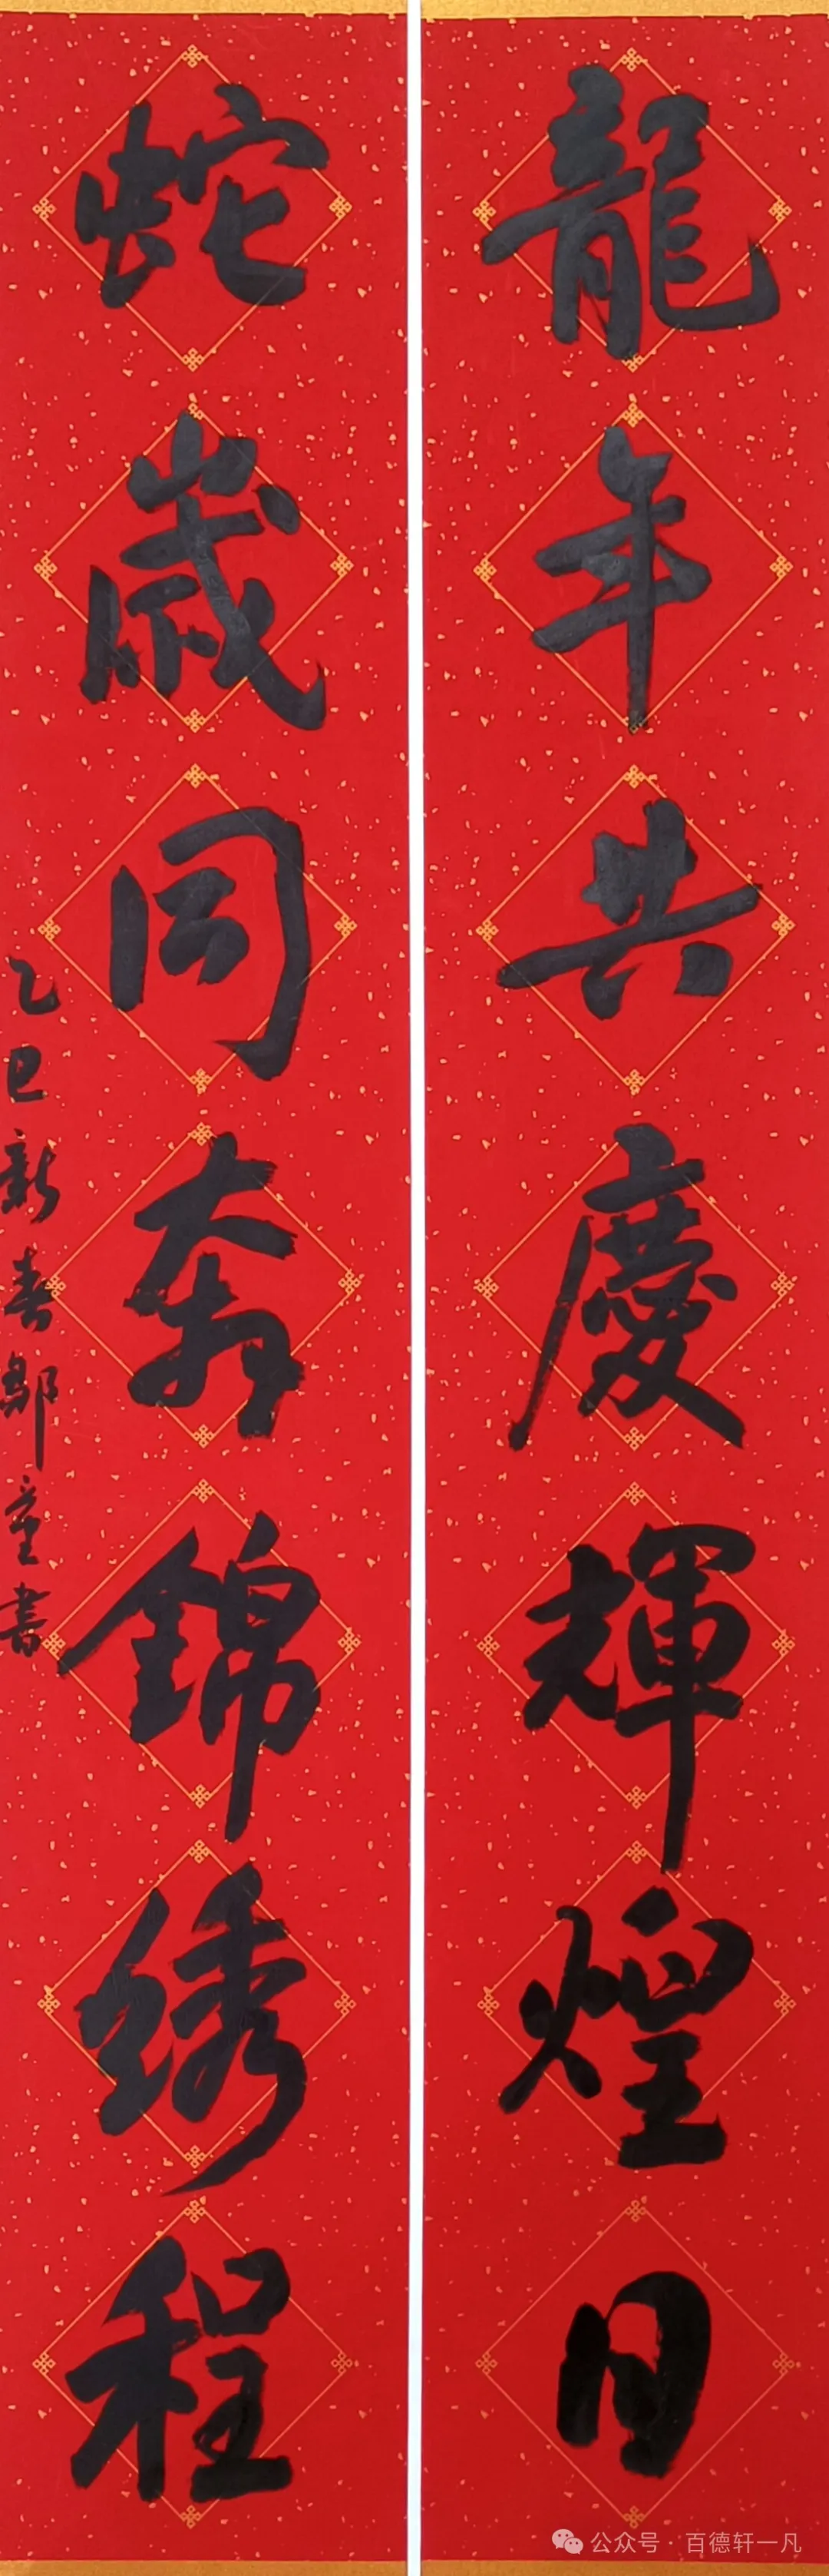 龍年共慶輝煌日
蛇歲同奔錦绣程
乙巳新春鄔童書
公众号·百德轩一凡